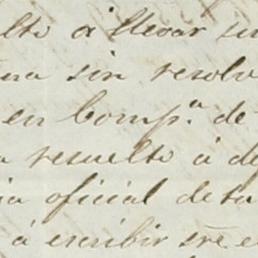 elto á llevar un
na sin resolv
en Comp.ª de
resuelto á de
ia oficial de ta
á escribir sre e